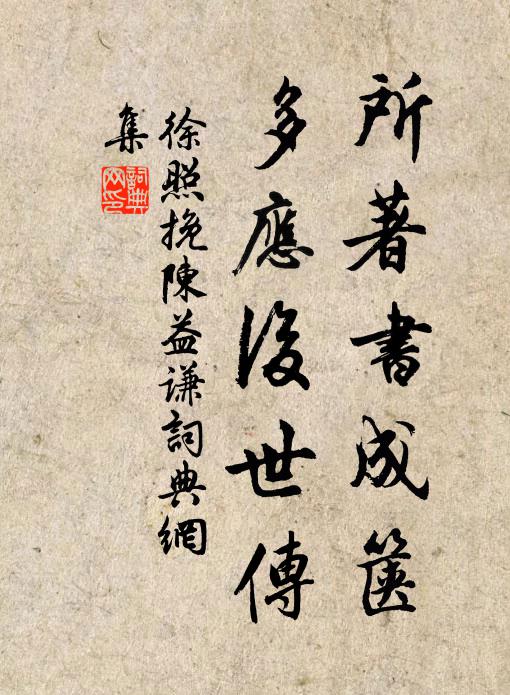 所著書成篋
多應後世傳
徐照挽陳益謙詞典網
集
詞典
网印